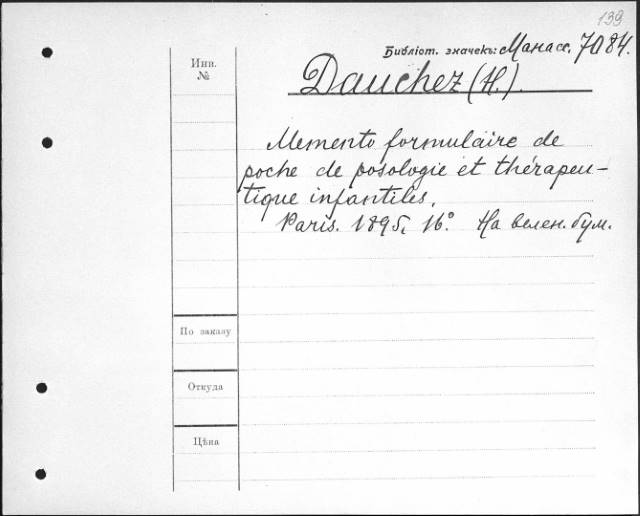 139
Библіот. значекъ: Манасс. 7084.
Инв.
№
Dauchez (H.).
Memento formulaire de
poche de posologie et thérapeu-
tique infantiles.
Paris. 1895. 16°. На велен. бум.
По заказу
Откуда
Цѣна